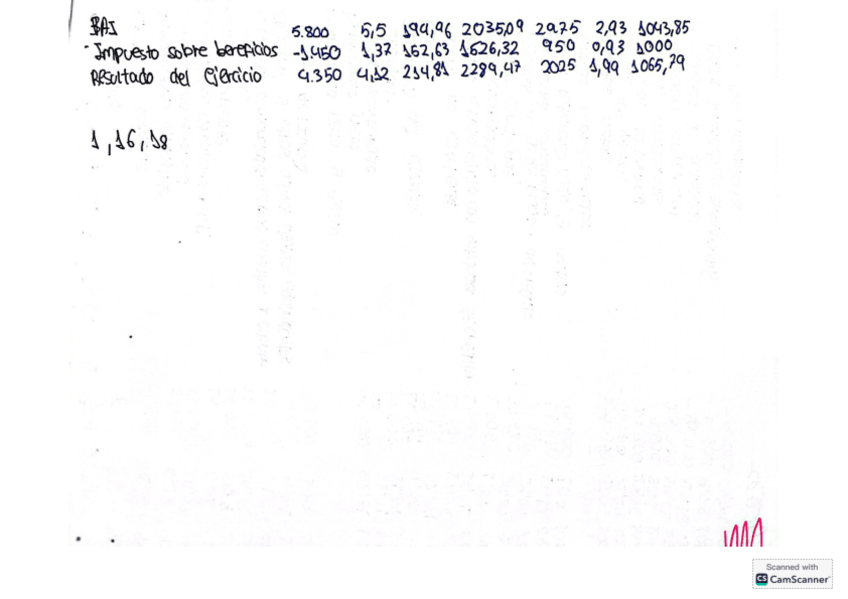 BAI 5.800 5,5 194,96 2035,09 2975 2,93 1043,85
- Impuesto sobre beneficios -1.450 1,37 162,63 1626,32 950 0,93 1000
Resultado del Ejercicio 4.350 4,12 214,81 2289,47 2025 1,99 1065,79
1, 16, 18
Scanned with
CS CamScanner